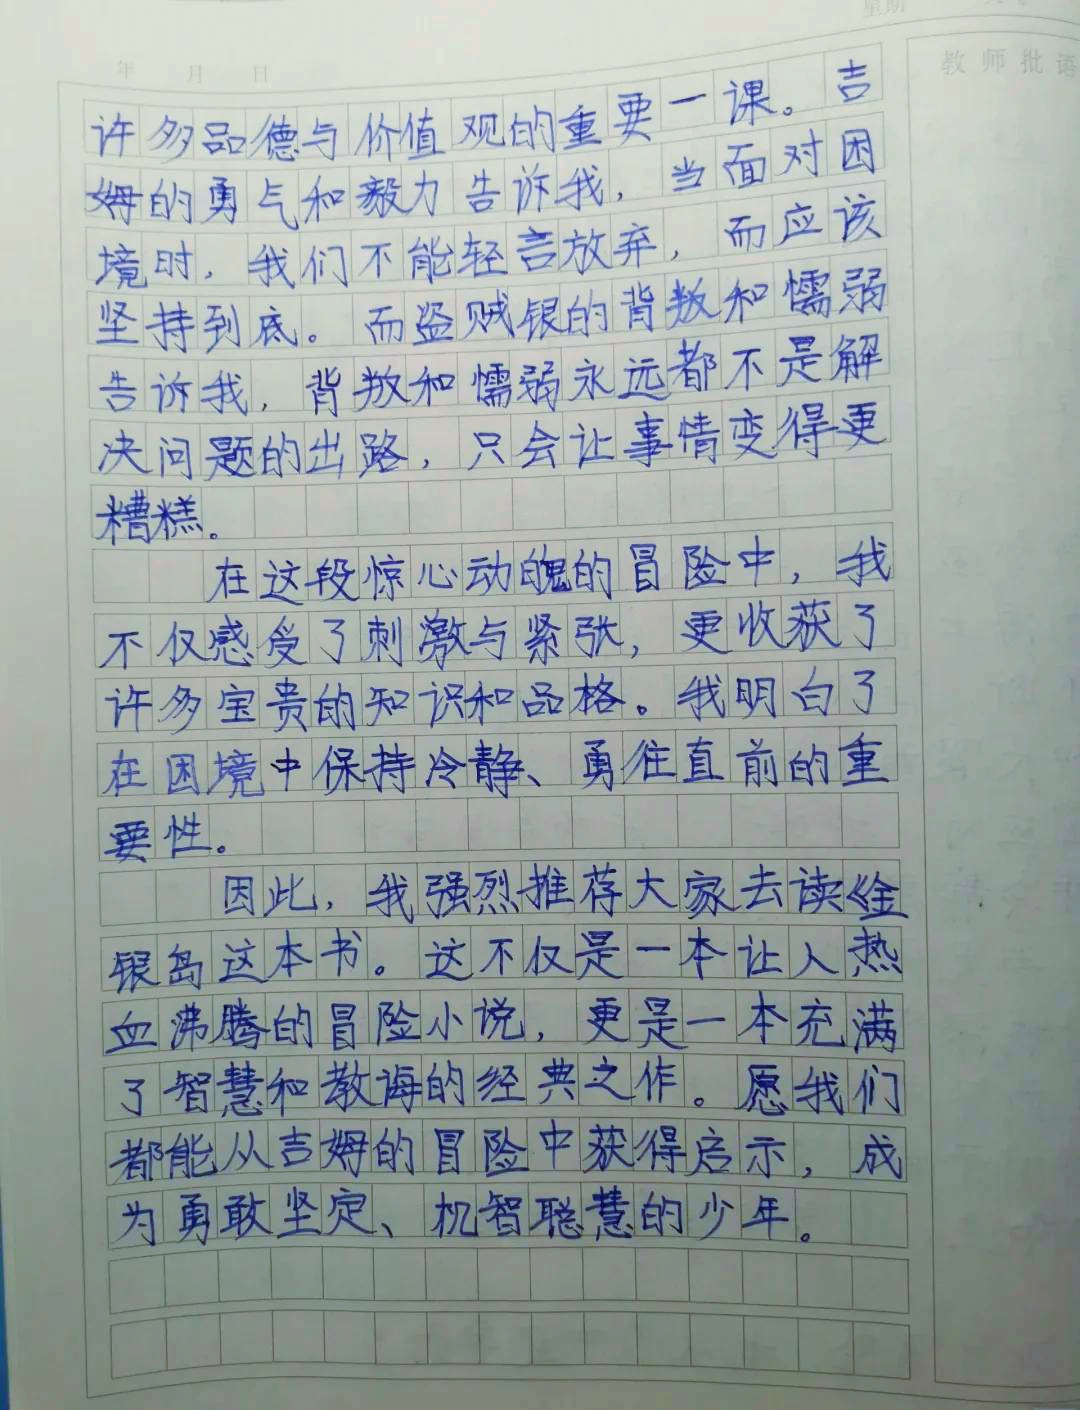 星期
年 月 日
教师批语
许多品德与价值观的重要一课。吉
姆的勇气和毅力告诉我，当面对困
境时，我们不能轻言放弃，而应该
坚持到底。而盗贼银的背叛和懦弱
告诉我，背叛和懦弱永远都不是解
决问题的出路，只会让事情变得更
糟糕。
在这段惊心动魄的冒险中，我
不仅感受了刺激与紧张，更收获了
许多宝贵的知识和品格。我明白了
在困境中保持冷静、勇往直前的重
要性。
因此，我强烈推荐大家去读《金
银岛这本书。这不仅是一本让人热
血沸腾的冒险小说，更是一本充满
了智慧和教诲的经典之作。愿我们
都能从吉姆的冒险中获得启示，成
为勇敢坚定、机智聪慧的少年。